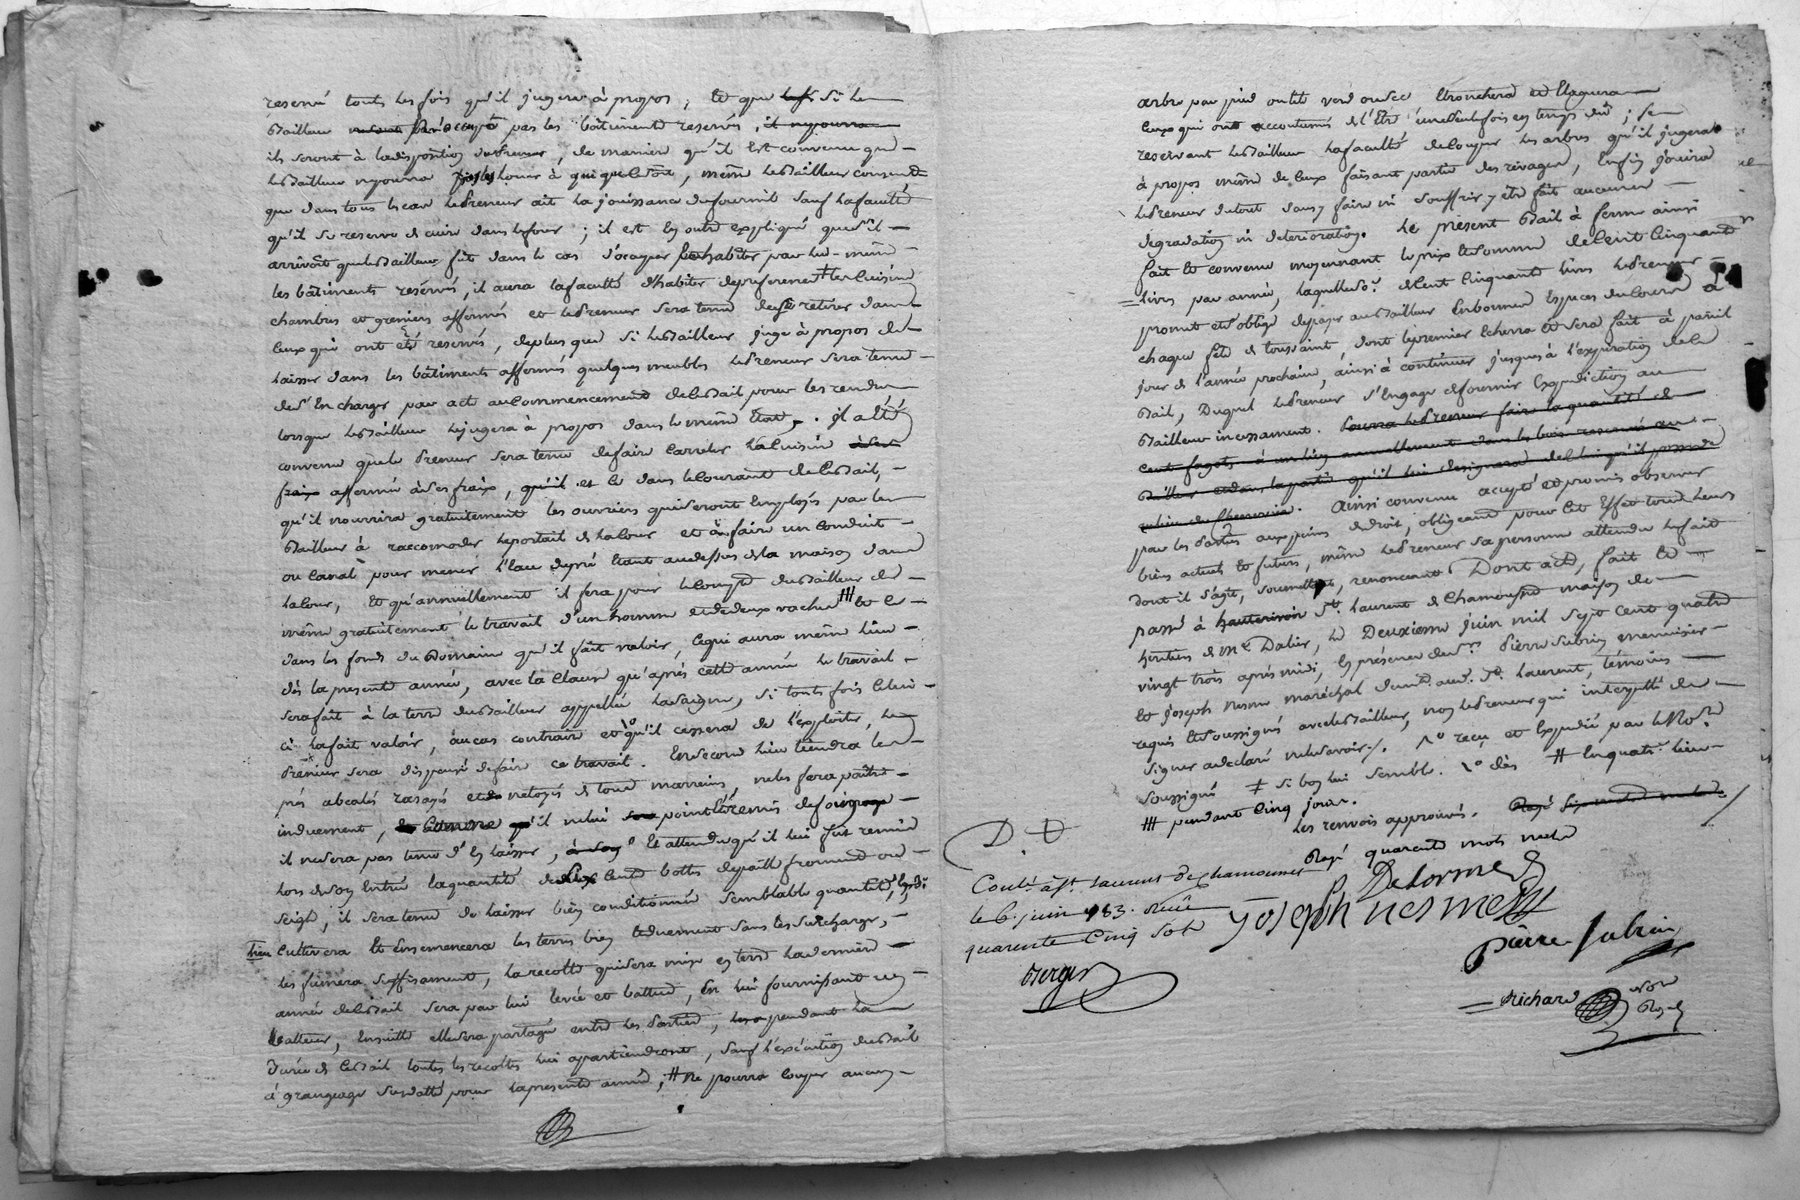 reservé touts les fois qu'il jugera à propos, et que si le
Bailleur pas les bâtiments reservés, il n'y pourra
ils seront à la disposition du preneur, de maniere qu'il est convenu que
le Bailleur n'y pourra louer à qui que ce soit, même le Bailleur consent
que dans tous les cas le Preneur ait la jouissance du fournil sauf la faculté
qu'il se reserve de cuire dans le four ; il est en outre expliqué que s'il
arrivoit que le Bailleur fut dans le cas d'occuper habiter par lui-même
les bâtiments reservés, il aura la faculté d'habiter de preference la cuisine
chambres et greniers affermés et le Preneur sera tenu de se retirer dans
ceux qui ont été reservés, de plus que si le Bailleur juge à propos de
laisser dans les bâtiments affermés quelques meubles le Preneur sera tenu
de s'en charger par acte au commencement de ce Bail pour les rendre
lorsque le Bailleur le jugera à propos dans le même état. il a été
convenu que le Preneur sera tenu de faire carreler la cuisine
frais affermée à ses fraix, qu'il et ce dans le courant de ce Bail,
qu'il nourrira gratuitement les ouvriers qui seront employés par le
Bailleur à raccomoder le portail de la cour et à faire un conduit
ou canal pour mener l'eau du pré étant au dessus de la maison dans
la cour, et qu'annuellement il fera pour le compte du Bailleur
même gratuitement le travail d'un homme et de deux vaches ⧻ et ce
dans les fonds du Domaine qu'il fait valoir, ce qui aura même lieu
dès la presente année, avec la clause qu'après cette année le travail
sera fait à la terre du Bailleur appellée La Saigne, si touts fois celui
ci la fait valoir, au cas contraire et qu'il cessera de l'exploiter, le
Preneur sera dispensé de faire ce travail. En second lieu tiendra les
prés abealés rasoyés et netoyés de tout marreins, ne les fera paître
induement, qu'il ne lui point été remis de foin
il ne sera pas tenu d'en laisser, et attendu qu'il lui fut remis
lors de son entrée la quantité de cent bottes de paille froment ou
seigle, il sera tenu de laisser bien conditionnée semblable quantité,
lieu cultivera et ensemencera les terres bien et duement sans les surcharger,
les fumera suffisament, la recolte qui sera mise en terre la derniere
année de ce Bail sera par lui levée et battue, en lui fournissant un
batteur, ensuitte elle sera partagée entre les Parties, pendant la
durée de ce Bail touts les recoltes lui apartiendront, sauf l'exécution du Bail
à grangeage susdatté pour la presente année ; # ne pourra couper aucun
arbre par pied ou tête verd ou sec étronchera et élaguera
ceux qui ont accoutumés de l'être une seule fois en temps dû ; se
reservant le Bailleur la faculté de couper les arbres qu'il jugera
à propos même de ceux faisant partie des rivages, Enfin jouira
le Preneur du tout sans y faire ni souffrir y être fait aucunes
degradation ni deterioration. Le present Bail à ferme ainsi
fait et convenu moyennant le prix et somme de Cent Cinquante
livres par année, laquelle de. de Cent Cinquante livres le Preneur
promet et s'oblige de payer au Bailleur en bonnes especes de cours à
chaque fête de toussaint, dont le premier écherra et sera fait à pareil
jour de l'année prochaine, ainsi à continuer jusques à l'expiration de ce
Bail, Duquel le Preneur s'engage de fournir Expedition au
Bailleur incessament. Pourra le Preneur faire la quantité de
cent fagots à un lien annuellement dans les bois reservés au
Bailleur et dans la partie qu'il lui designera de celui qu'il possede
Ainsi convenu accepté et promis observer
par les Parties aux peines de droit, obligeants pour cet Effet tous leurs
biens actuels et futurs, même le Preneur sa personne attendu le fait
dont il s'agit, soumettants, renonceants Dont acte, fait et
passé à hauterivoire St. Laurent de Chamousset maison des
heritiers de Me Dalier, le Deuxieme juin mil sept cent quatre
vingt trois après midi, En présence de Srs Pierre Subrin menuisier
et Joseph Nesme maréchal demts. aud. St. Laurent, témoins
requis et soussignés avec le Bailleur, non le Preneur qui interpellé de
signer a declaré ne le savoir ./. No reçu et Expedié par le No.re
soussigné ‡ si bon lui semble. dès # En quatr. lieu
⧻ pendant Cinq jours.
les renvois approuvés. Rayé
Rayé quarante mots nuls
D. D
Delorme
Contl. à St. Laurent de Chamousset
le 6. juin 1783. Reçu
quarente Cinq sols
Berger
Joseph nesme
pierre subrin
Richard No.re Royal